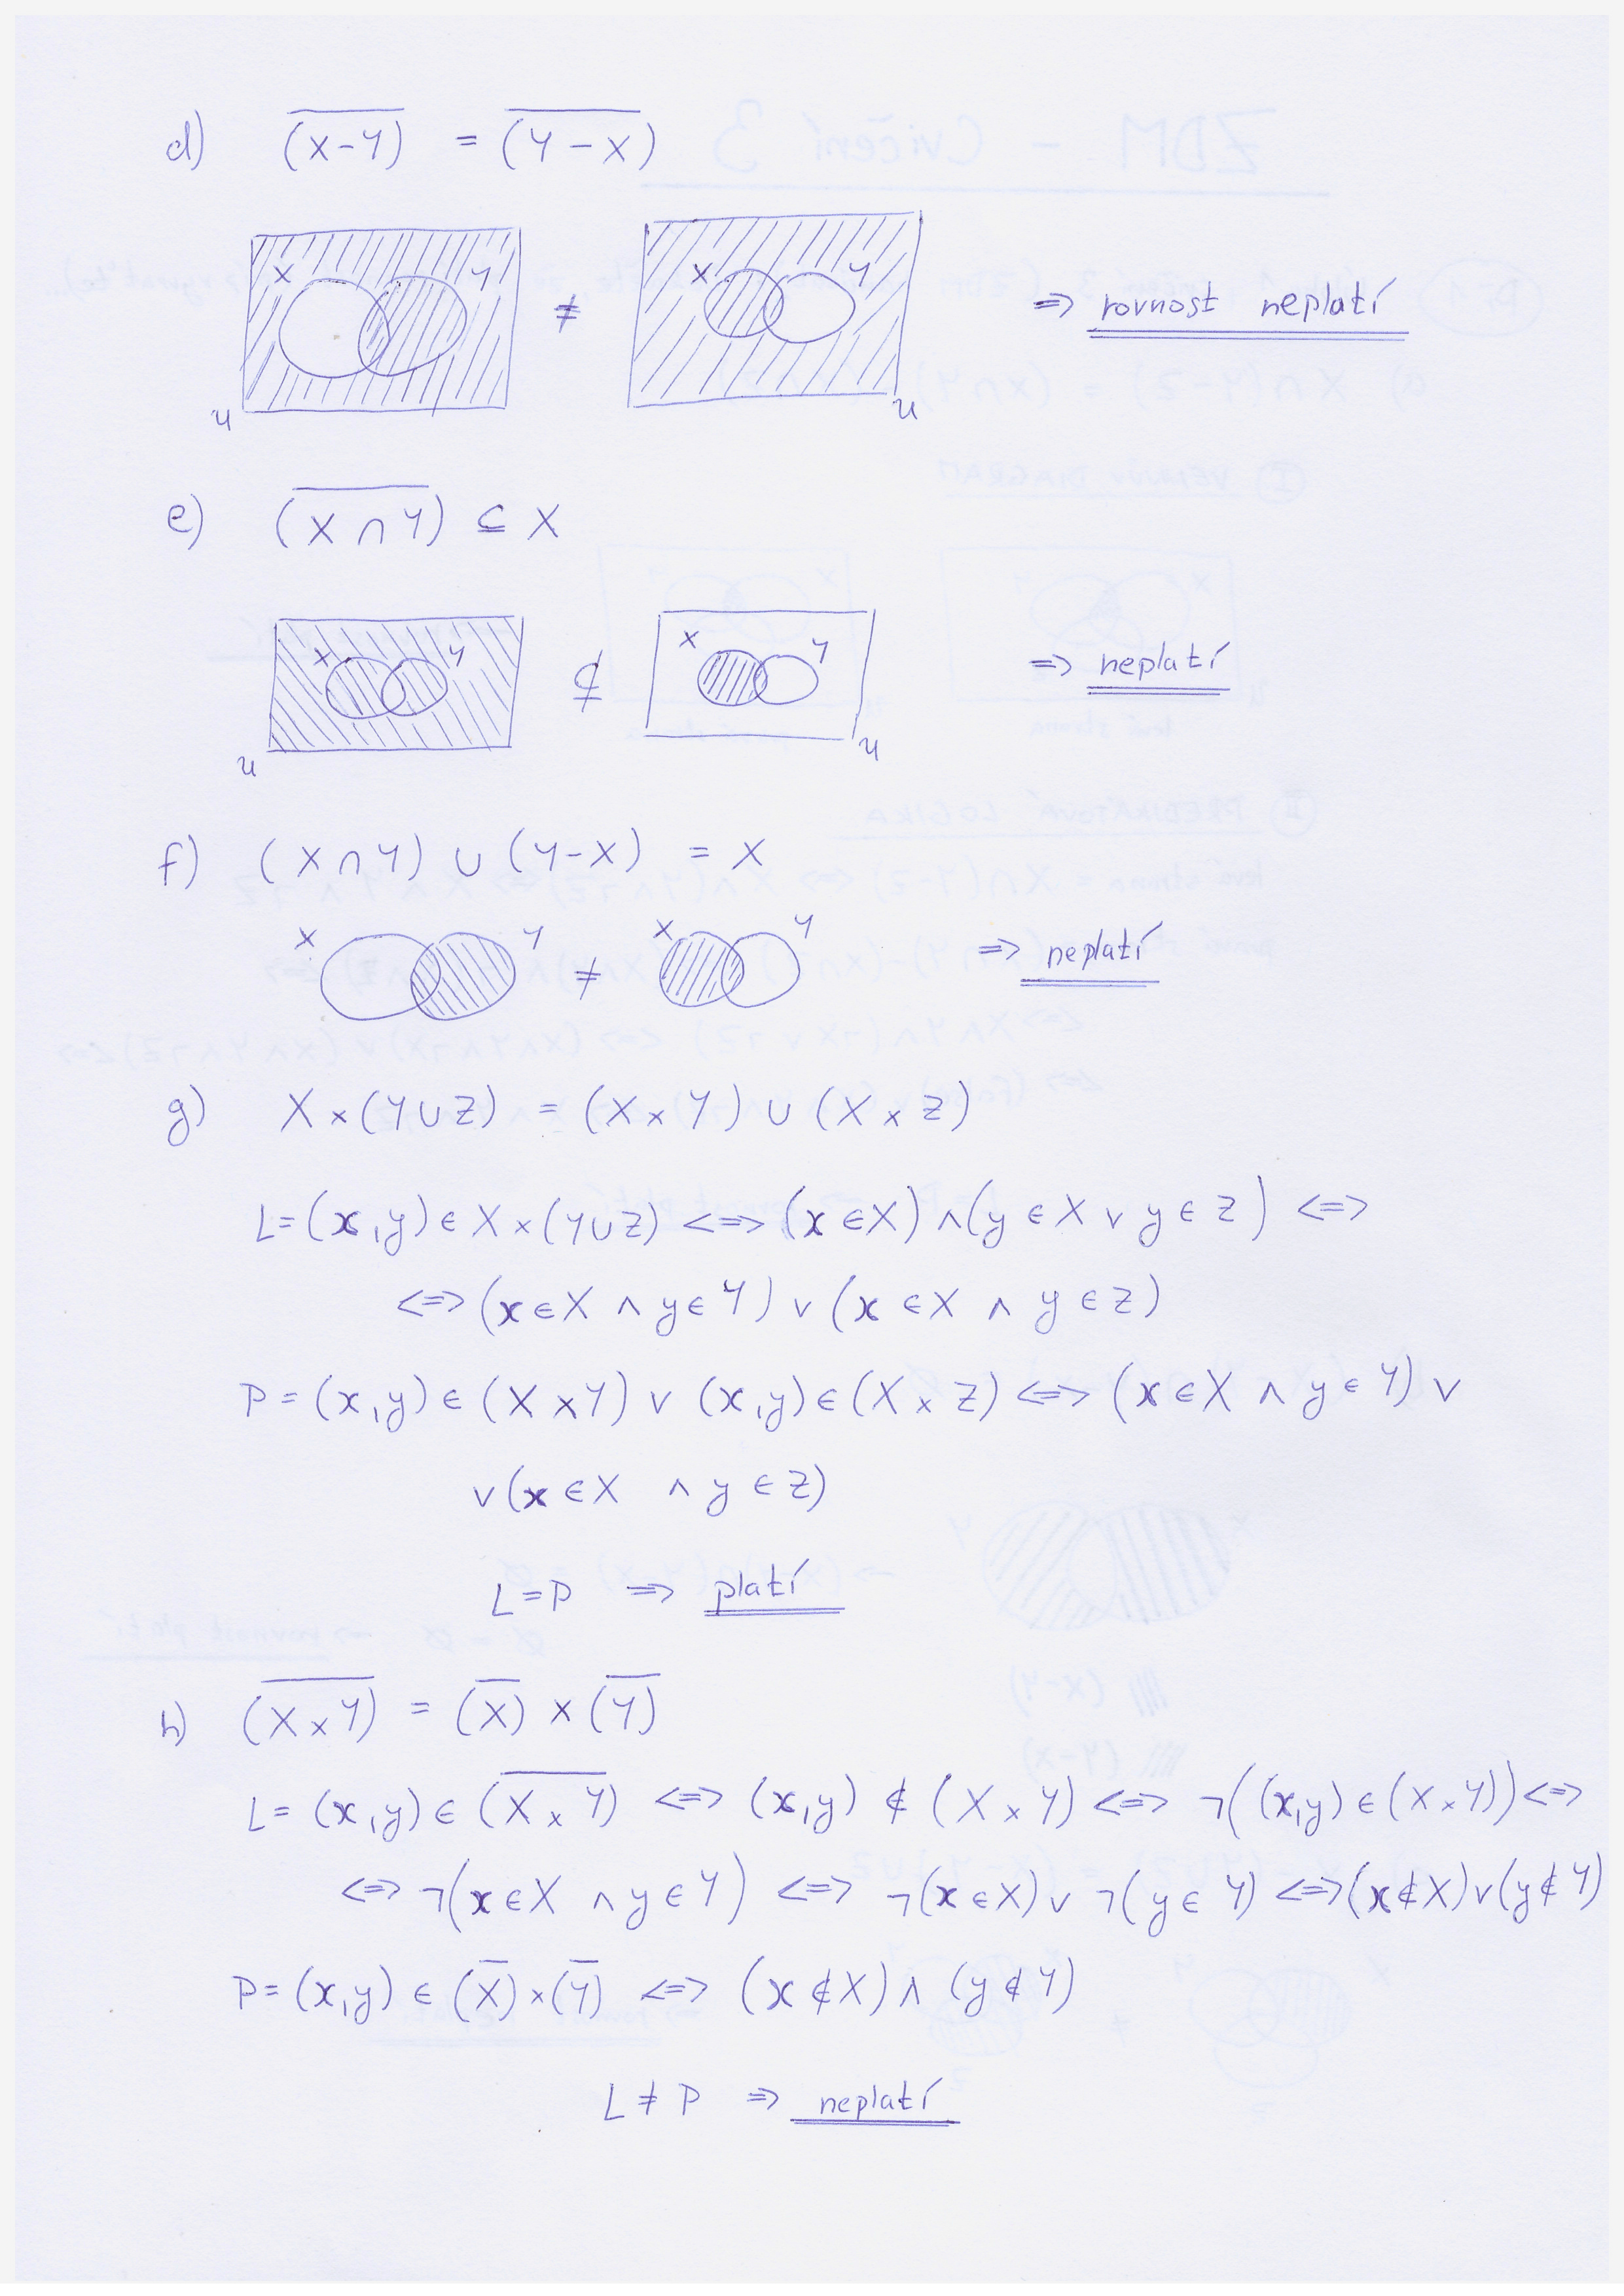 d) \overline{(X-Y)} = \overline{(Y-X)}
X Y ≠ X Y ⇒ rovnost neplatí
U U
e) \overline{(X ∩ Y)} ⊆ X
X Y ⊈ X Y ⇒ neplatí
U U
f) (X ∩ Y) ∪ (Y-X) = X
X Y ≠ X Y ⇒ neplatí
g) X × (Y ∪ Z) = (X × Y) ∪ (X × Z)
L = (x,y) ∈ X × (Y ∪ Z) <=> (x ∈ X) ∧ (y ∈ X ∨ y ∈ Z) <=>
<=> (x ∈ X ∧ y ∈ Y) ∨ (x ∈ X ∧ y ∈ Z)
P = (x,y) ∈ (X × Y) ∨ (x,y) ∈ (X × Z) <=> (x ∈ X ∧ y ∈ Y) ∨
∨ (x ∈ X ∧ y ∈ Z)
L = P ⇒ platí
h) \overline{(X × Y)} = (\overline{X}) × (\overline{Y})
L = (x,y) ∈ \overline{(X × Y)} <=> (x,y) ∉ (X × Y) <=> ¬((x,y) ∈ (X × Y)) <=>
<=> ¬(x ∈ X ∧ y ∈ Y) <=> ¬(x ∈ X) ∨ ¬(y ∈ Y) <=> (x ∉ X) ∨ (y ∉ Y)
P = (x,y) ∈ (\overline{X}) × (\overline{Y}) <=> (x ∉ X) ∧ (y ∉ Y)
L ≠ P ⇒ neplatí